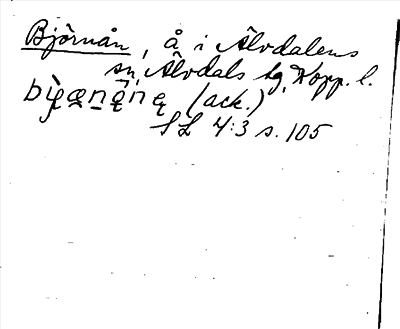 Björnån, å i Älvdalens
sn, Älvdals tg, Kopp. l.
(ack.)
SL 4:3 s. 105